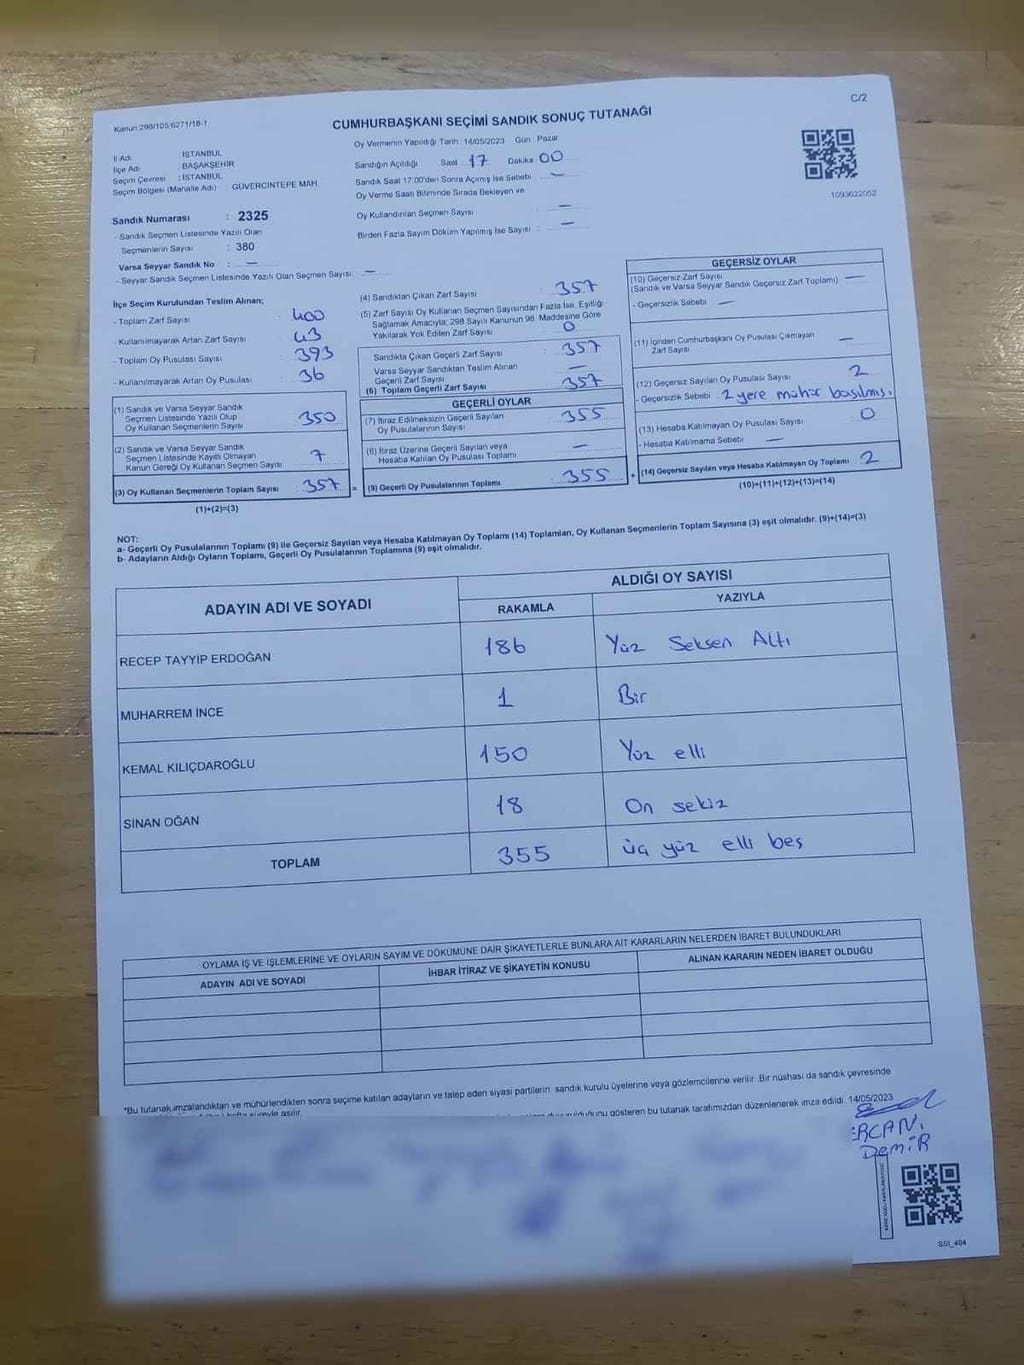 Kanun:298/105,6271/18-1
C/2
CUMHURBAŞKANI SEÇİMİ SANDIK SONUÇ TUTANAĞI
Oy Vermenin Yapıldığı Tarih :14/05/2023 Gün : Pazar
İl Adı : İSTANBUL
İlçe Adı : BAŞAKŞEHİR
Seçim Çevresi : İSTANBUL
Seçim Bölgesi (Mahalle Adı) : GÜVERCİNTEPE MAH.
Sandığın Açıldığı Saat 17 Dakika 00
Sandık Saat 17:00'den Sonra Açılmış İse Sebebi —
Oy Verme Saati Bitiminde Sırada Bekleyen ve
Oy Kullandırılan Seçmen Sayısı —
Birden Fazla Sayım Döküm Yapılmış İse Sayısı : —
1093622052
Sandık Numarası : 2325
- Sandık Seçmen Listesinde Yazılı Olan
Seçmenlerin Sayısı : 380
Varsa Seyyar Sandık No : —
- Seyyar Sandık Seçmen Listesinde Yazılı Olan Seçmen Sayısı: —
İlçe Seçim Kurulundan Teslim Alınan;
- Toplam Zarf Sayısı : 400
- Kullanılmayarak Artan Zarf Sayısı : 43
- Toplam Oy Pusulası Sayısı : 393
- Kullanılmayarak Artan Oy Pusulası : 36
(1) Sandık ve Varsa Seyyar Sandık
Seçmen Listesinde Yazılı Olup
Oy Kullanan Seçmenlerin Sayısı : 350
(2) Sandık ve Varsa Seyyar Sandık
Seçmen Listesinde Kayıtlı Olmayan
Kanun Gereği Oy Kullanan Seçmen Sayısı : 7
(3) Oy Kullanan Seçmenlerin Toplam Sayısı : 357
(1)+(2)=(3)
(4) Sandıktan Çıkan Zarf Sayısı : 357
(5) Zarf Sayısı Oy Kullanan Seçmen Sayısından Fazla İse, Eşitliği
Sağlamak Amacıyla; 298 Sayılı Kanunun 98. Maddesine Göre
Yakılarak Yok Edilen Zarf Sayısı : 0
Sandıkta Çıkan Geçerli Zarf Sayısı : 357
Varsa Seyyar Sandıktan Teslim Alınan
Geçerli Zarf Sayısı : —
(6) Toplam Geçerli Zarf Sayısı : 357
GEÇERLİ OYLAR
(7) İtiraz Edilmeksizin Geçerli Sayılan
Oy Pusulalarının Sayısı : 355
(8) İtiraz Üzerine Geçerli Sayılan veya
Hesaba Katılan Oy Pusulası Toplamı : —
(9) Geçerli Oy Pusulalarının Toplamı : 355
GEÇERSİZ OYLAR
(10) Geçersiz Zarf Sayısı
(Sandık ve Varsa Seyyar Sandık Geçersiz Zarf Toplamı) : —
- Geçersizlik Sebebi : —
(11) İçinden Cumhurbaşkanı Oy Pusulası Çıkmayan
Zarf Sayısı : —
(12) Geçersiz Sayılan Oy Pusulası Sayısı : 2
- Geçersizlik Sebebi : 2 yere mühür basılmış.
(13) Hesaba Katılmayan Oy Pusulası Sayısı : 0
- Hesaba Katılmama Sebebi : —
(14) Geçersiz Sayılan veya Hesaba Katılmayan Oy Toplamı : 2
(10)+(11)+(12)+(13)=(14)
NOT:
a- Geçerli Oy Pusulalarının Toplamı (9) ile Geçersiz Sayılan veya Hesaba Katılmayan Oy Toplamı (14) Toplamları, Oy Kullanan Seçmenlerin Toplam Sayısına (3) eşit olmalıdır. (9)+(14)=(3)
b- Adayların Aldığı Oyların Toplamı, Geçerli Oy Pusulalarının Toplamına (9) eşit olmalıdır.
ADAYIN ADI VE SOYADI
ALDIĞI OY SAYISI
RAKAMLA YAZIYLA
RECEP TAYYİP ERDOĞAN 186 Yüz Seksen Altı
MUHARREM İNCE 1 Bir
KEMAL KILIÇDAROĞLU 150 Yüz elli
SİNAN OĞAN 18 On sekiz
TOPLAM 355 üç yüz elli beş
OYLAMA İŞ VE İŞLEMLERİNE VE OYLARIN SAYIM VE DÖKÜMÜNE DAİR ŞİKAYETLERLE BUNLARA AİT KARARLARIN NELERDEN İBARET BULUNDUKLARI
ADAYIN ADI VE SOYADI
İHBAR İTİRAZ VE ŞİKAYETİN KONUSU
ALINAN KARARIN NEDEN İBARET OLDUĞU
*Bu tutanak,imzalandıktan ve mühürlendikten sonra seçime katılan adayların ve talep eden siyasi partilerin sandık kurulu üyelerine veya gözlemcilerine verilir. Bir nüshası da sandık çevresinde
gösteren bu tutanak tarafımızdan düzenlenerek imza edildi. 14/05/2023
ERCAN.
DEMİR
SSI_404